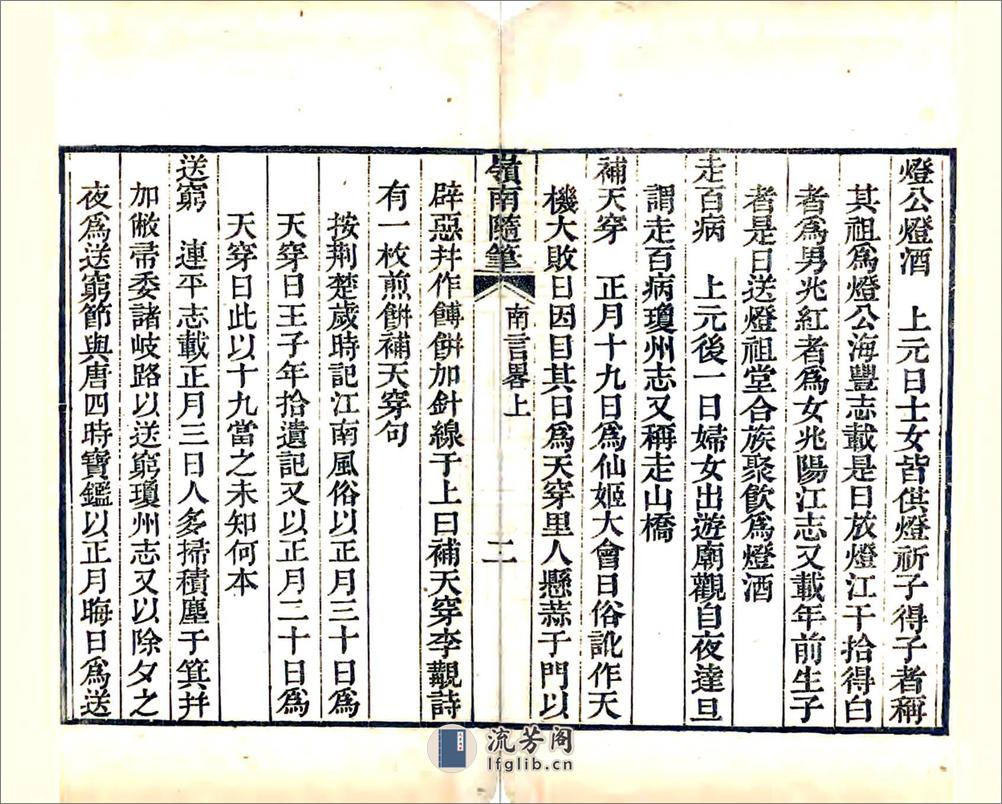 燈公燈酒　上元日士女皆供燈祈子得子者稱
其祖爲燈公海豐志載是日放燈江干拾得白
者爲男兆紅者爲女兆陽江志又載年前生子
者是日送燈祖堂合族聚飲爲燈酒
走百病　上元後一日婦女出遊廟觀自夜達旦
謂走百病瓊州志又稱走山橋
補天穿　正月十九日爲仙姬大會日俗訛作天
機大敗日因目其日爲天穿里人懸蒜于門以
嶺南隨筆　南言畧上　二
辟惡幷作餺餅加針線于上曰補天穿李覯詩
有一枚煎餅補天穿句
按荆楚歲時記江南風俗以正月三十日爲
天穿日王子年拾遺記又以正月二十日爲
天穿日此以十九當之未知何本
送窮　連平志載正月三日人多掃積塵于箕幷
加敝帚委諸岐路以送窮瓊州志又以除夕之
夜爲送窮節與唐四時寶鑑以正月晦日爲送
流芳阁
lfglib.cn